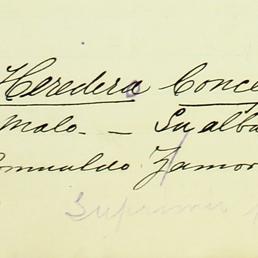 Heredera Conce
Malo - Su alba
omualdo Zamor
Suprimir